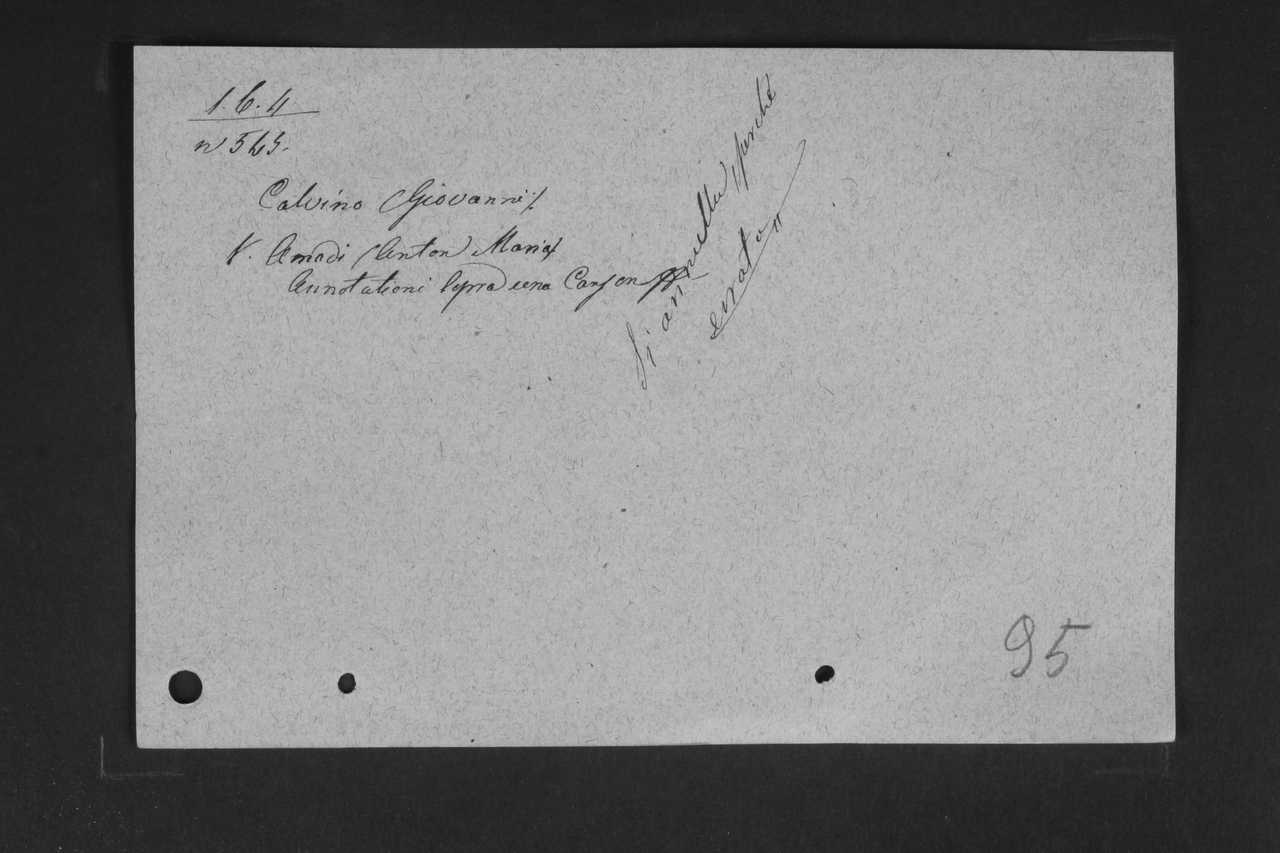 1. 6. 4
n 545.
Calvino (Giovanni).
V. Amadi (Anton Maria)
Annotationi sopra una Canzon
Si annulla perchè
errato
95